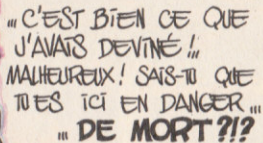 ... C'EST BIEN CE QUE
J'AVAIS DEVINÉ !..
MALHEUREUX ! SAIS-TU QUE
TU ES ICI EN DANGER ...
... DE MORT ?!?